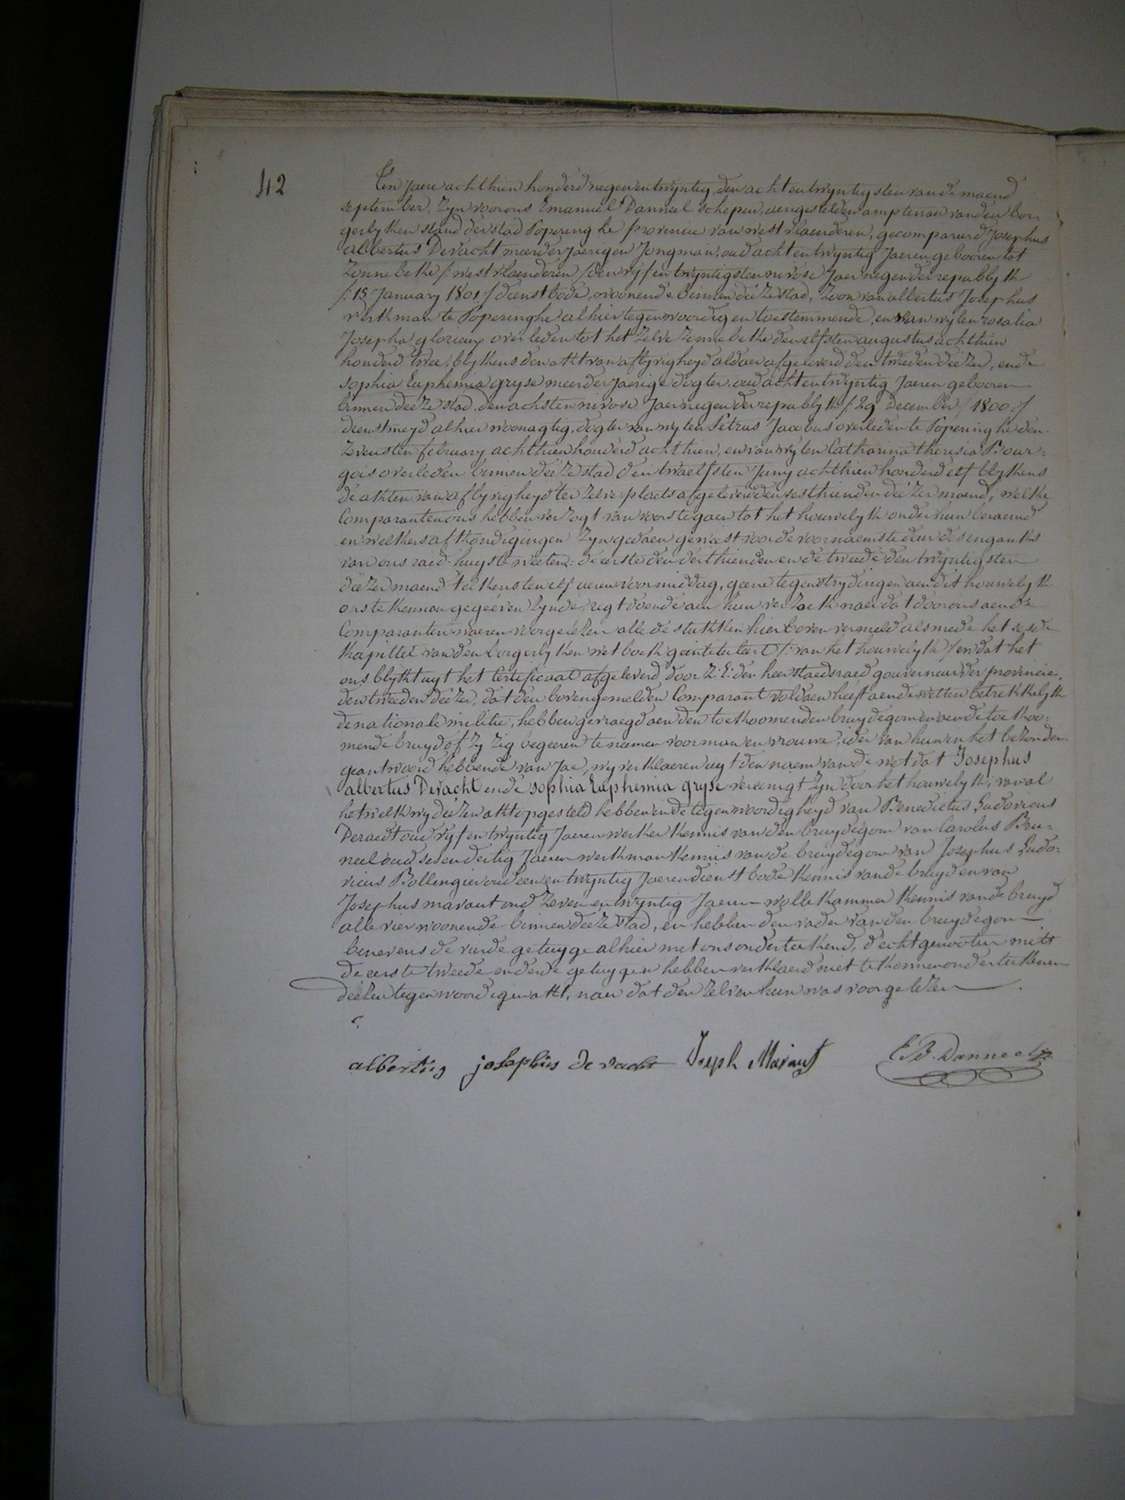 42
Ten Jaere achthien honderd negenentwyntig, den achtentwyntigsten van de maend
september, Zyn voor ons Emanuël Danneel schepen, aengestelden amptenaer van den bor-
gerlyken stand der stad Poperinghe provincie van west vlaenderen, gecompareerd Josephus
albertus Devacht meerderjaerigen Jongman, oud achtentwyntig Jaeren, gebooren tot
Zonnebeke / westvlaenderen / den vyfentwyntigsten nivose Jaer negen der republyk
/: 15 January 1801 :/ dienstbode, woonende binnen deéze stad, Zoon van albertus Josephus
werkman te Poperinghe alhier tegenwoordig en toestemmende, en van wylen rosalia
Josepha glorieux overleden tot het zelve Zonnebeke den elfsten augustus achthien
honderd twee, blykens den akt van aflyvigheyd aldaer afgeleverd den tweeden deézer, ende
Sophia Euphemia gryse meerderjaerige dogter, oud achtentwyntig Jaeren gebooren
binnen deéze stad, den achsten nivose Jaer negen der republyk / 29 december 1800 :/
dienstmeyd alhier woonagtig, dogter van wylen Petrus Jacobus overleden te Poperinghe den
zevensten february achthien honderd achthien, en van wylen Catharina theresia Bour-
gois overleden binnen deéze stad den twaelfsten Juny achthien honderd elf blykens
de akten van aflyvigheyd ter zelver plaets afgeleverd den sesthienden deézer maend, welke
Comparanten ons hebben verzogt van voorstegaen tot het houwelyk onder hun beraemd
en welkers afkondigingen Zyn gedaen geweest voor de voornaemste deur des ingangs
van ons raed-huys te weeten: de eerste den derthienden en de tweede den twyntigsten
deézer maend telkens ten elf ueren voormiddag, geene tegenstrydigingen aen dit houwelyk
ons te kennen gegeéven Zynde, regt doende aen hun verzoek naer dat door ons aen de
Comparanten waeren voorgelezen alle de stukken hier boven vermeld alsmede het sesde
kapittel van den borgerlyken wetboek geintituleerd /: van het houwelyk / en dat het
ons blykt uyt het certificaat afgeleverd door Z: E: den heer staedsraed gouverneur der provincie
den tweeden deézer, dat den bovengemelden Comparant voldaen heeft aen de wetten betrekkelyk
de nationale militie, hebben gevraegd aen den toekoomenden bruydegom en aen de toekoo-
mende bruyd of zy zig begeeren te naemen voor man en vrouwe; ider van hun in het bezonder
geantwoord hebbende van Jae, wy verklaeren uyt den naem van de wet dat Josephus
albertus Devacht ende Sophia Euphemia gryse vereenigt Zyn door het houwelyk, van al
het welk wy deézen akt opgesteld hebben en de tegenwoordigheyd van Benedictus Ludovicus
Deraedt oud vyfentwyntig Jaeren werker kennis van den bruydegom van Carolus Bru-
neel oud sesendertig Jaeren werkman kennis van de bruydegom van Josephus Ludo-
vicus Bollengier oud eenentwyntig Jaeren dienstbode kennis van de bruyd en van
Josephus maraut oud Zevenentwyntig Jaeren wollekammer kennis van de bruyd
alle vier woonende binnen deéze stad, en hebben den vader van den bruydegom
benevens de vierde getuyge alhier met ons onderteekend, d'echtgenooten mits
de eerste tweede en derde getuygen hebben verklaerd niet te konnen onderteekenen
deézen tegenwoordigen akt, naer dat den zelven hun was voorgelezen
albertus josephus de vacht Joseph Maraut E. B. Danneel